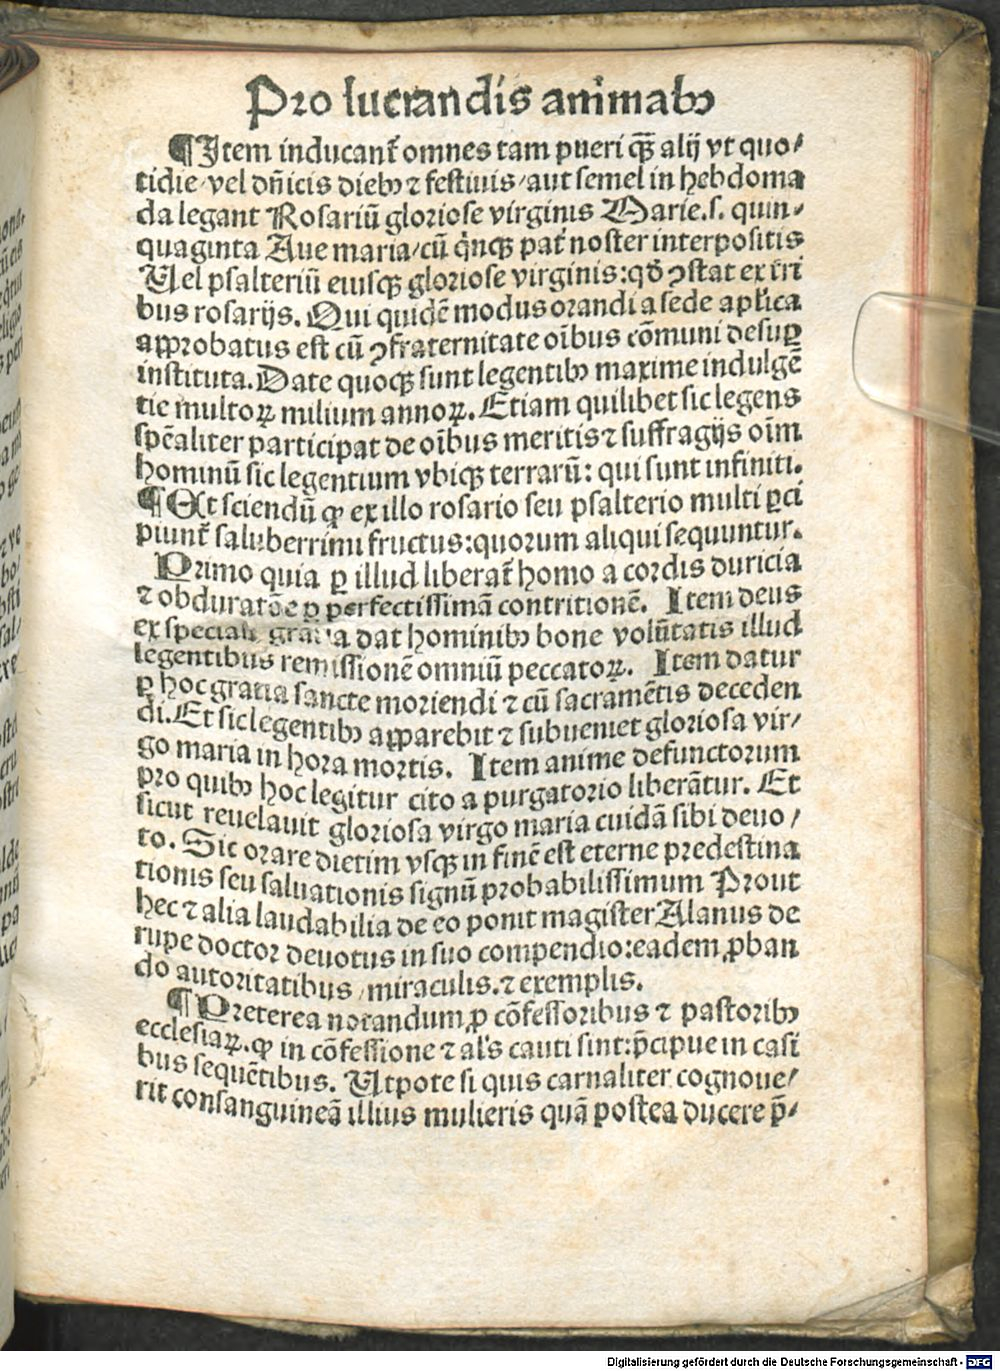 Pro lucrandis animabꝫ
¶Item inducant̃ omnes tam pueri qꝫ̃ alij vt quo/
tidie/vel dñicis diebꝫ ⁊ festiuis/aut semel in hebdoma
da legant Rosariũ gloriose virginis Marie.s. quin/
quaginta Aue maria/cũ q̃nqꝫ pat̃ noster interpositis
Uel psalteriũ eiusqꝫ gloriose virginis:qđ ꝯstat ex tri
bus rosarijs. Qui quidẽ modus orandi a sede apl̃ica
aꝓprobatus est cũ ꝯfraternitate oĩbus cõmuni desuꝑ
instituta. Date quoqꝫ sunt legentibꝫ maxime indulgẽ
tie multoꝝ milium annoꝝ. Etiam quilibet sic legens
spẽaliter participat de oĩbus meritis ⁊ suffragijs oĩm
hominũ sic legentium vbiqꝫ terrarũ: qui sunt infiniti.
¶Et sciendũ ꝙ ex illo rosario seu psalterio multi ꝑci
piunt̃ saluberrimi fructus:quorum aliqui sequuntur.
Primo quia ꝑ illud liberat̃ homo a cordis duricia
⁊ obduratõe ꝑ perfectissimã contritionẽ. Item deus
ex speciali gratia dat hominibꝫ bone volũtatis illud
legentibus remissionẽ omniũ peccatoꝝ. Item datur
ꝑ hoc gratia sancte moriendi ⁊ cũ sacramẽtis deceden
di. Et sic legentibꝫ apparebit ⁊ subueniet gloriosa vir/
go maria in hora mortis. Item anime defunctorum
pro quibꝫ hoc legitur cito a purgatorio liberãtur. Et
sicut reuelauit gloriosa virgo maria cuidã sibi deuo/
to. Sic orare dietim vsqꝫ in finẽ est eterne predestina
tionis seu saluationis signũ probabilissimum Prout
hec ⁊ alia laudabilia de eo ponit magister Alanus de
rupe doctor deuotus in suo compendio:eadem ꝓban
do autoritatibus/miraculis.⁊ exemplis.
¶Preterea notandum ꝓ cõfessoribus ⁊ pastoribꝫ
ecclesiaꝝ. ꝙ in cõfessione ⁊ al's cauti sint:p̃cipue in casi
bus sequẽtibus. Utpote si quis carnaliter cognoue/
rit consanguineã illius mulieris quã postea ducere p̃/
Digitalisierung gefördert durch die Deutsche Forschungsgemeinschaft - DFG